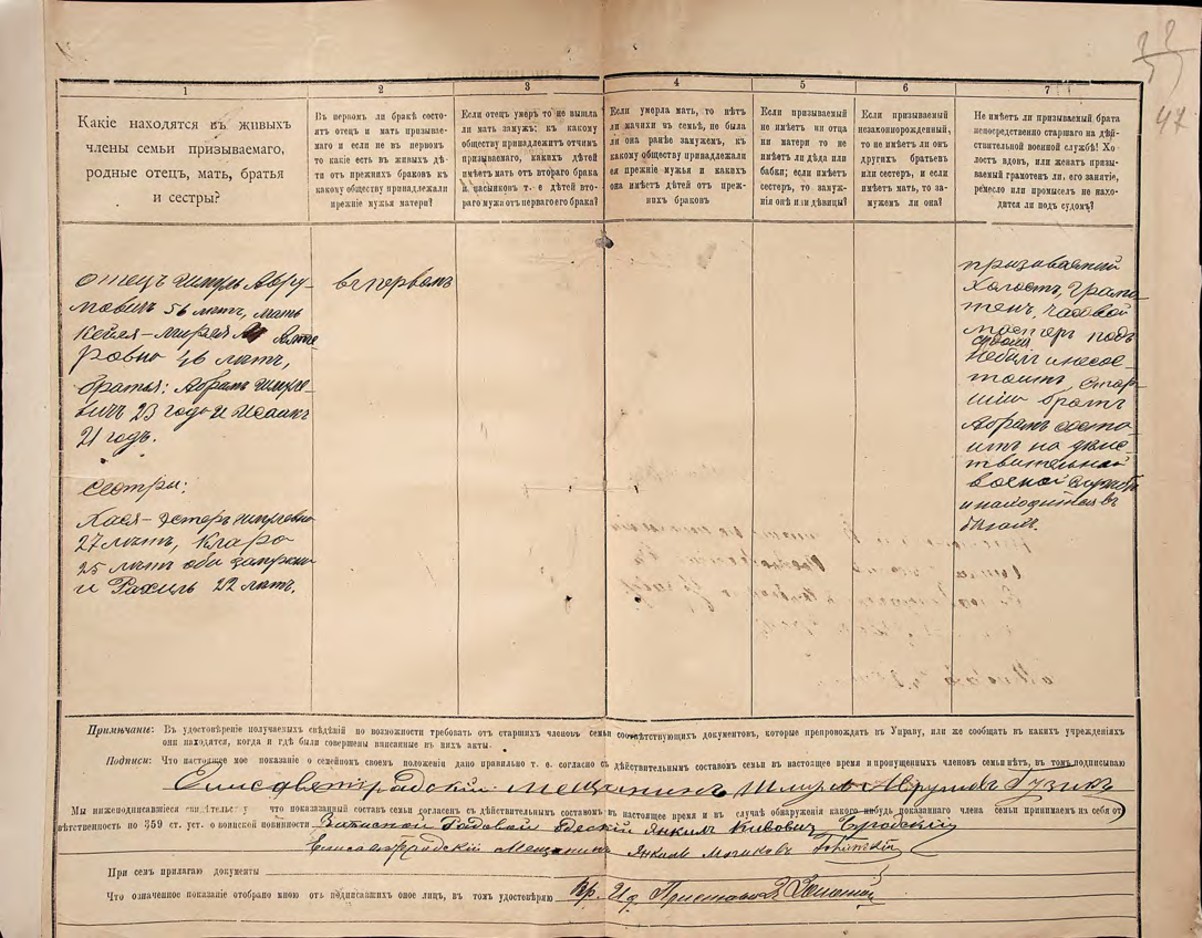 47
1
2
3
4
5
6
7
Какіе находятся въ живыхъ
члены семьи призываемаго,
родные отецъ, мать, братья
и сестры?
Въ первомъ ли бракѣ состо-
ятъ отецъ и мать призывае-
маго и если не въ первомъ
то какіе есть въ живыхъ дѣ-
ти отъ прежнихъ браковъ къ
какому обществу принадлежали
прежніе мужья матери?
Если отецъ умеръ то не вышла
ли мать замужъ: къ какому
обществу принадлежитъ отчимъ
призываемаго, какихъ дѣтей
имѣетъ мать отъ втораго брака
и пасынковъ т. е дѣтей вто-
раго мужа отъ перваго его брака?
Если умерла мать, то нѣтъ
ли мачихи въ семьѣ, не была
ли она ранѣе замужемъ, къ
какому обществу принадлежали
ея прежніе мужья и какихъ
она имѣетъ дѣтей отъ преж-
нихъ браковъ
Если призываемый
не имѣетъ ни отца
ни матери то не
имѣетъ ли дѣда или
бабки; если имѣетъ
сестеръ, то замуж-
нія онѣ или дѣвицы?
Если призываемый
незаконнорожденный,
то не имѣетъ ли онъ
другихъ братьевъ
или сестеръ, и если
имѣетъ мать, то за-
мужемъ ли она?
Не имѣетъ ли призываемый брата
непосредственно старшаго на дѣй-
ствительной военной службѣ! Хо
лостъ вдовъ, или женатъ призы-
ваемый грамотенъ ли, его занятіе,
ремесло или промыселъ не нахо-
дится ли подъ судомъ?
отецъ Шмуль Абру-
мовичъ 56 лѣтъ, мать
Кейля-Мирля Лейзе
ровна 46 лѣтъ,
братья: Абрамъ Шмуле-
вичъ 23 года и Исаакъ
21 годъ.
Сестры:
Хася-Эстеръ Шмулевна
27 лѣтъ, Клара
25 лѣтъ обѣ замужемъ
и Рахиль 22 лѣтъ.
въ первомъ
призываемый
холостъ, грамо-
тенъ, часовой
мастеръ подъ
судомъ
небылъ и несос-
тоитъ, стар-
шій братъ
Абрамъ состо-
итъ на дѣйс-
твительной
военой службѣ
и находится въ
бѣгахъ.
Примѣчаніе: Въ удостовѣреніе получаемыхъ свѣдѣній по возможности требовать от старшихъ членовъ семьи соотвѣтствующихъ документовъ, которые препровождать въ Управу, или же сообщать въ какихъ учрежденіяхъ
они находятся, когда и гдѣ были совершены вписанные въ нихъ акты.
Подписи: Что настоящее мое показаніе о семейномъ своемъ положеніи дано правильно т. е. согласно съ дѣйствительнымъ составомъ семьи въ настоящее время и пропущенныхъ членовъ семьи нѣтъ, въ томъ подписываю
Елисаветградскій Мещанинъ Шмуль Абрумовъ Гузикъ
Мы нижеподписавшіеся свидѣтельству что показанный составъ семьи согласенъ съ дѣйствительнымъ составомъ въ настоящее время и въ случаѣ обнаруженія какого нибудь показаннаго члена семьи принимаемъ на себя от
вѣтственность по 359 ст. уст. о воинской повинности Запасной Рядовой Одескій Янкилъ Кивовичъ Бродскій
Елисаветградскій Мещанинъ Янкилъ
При семъ прилагаю документы
Что означенное показаніе отобрано мною отъ подписавшихъ оное лицъ, въ томъ удостовѣряю Вр. И д Пристава